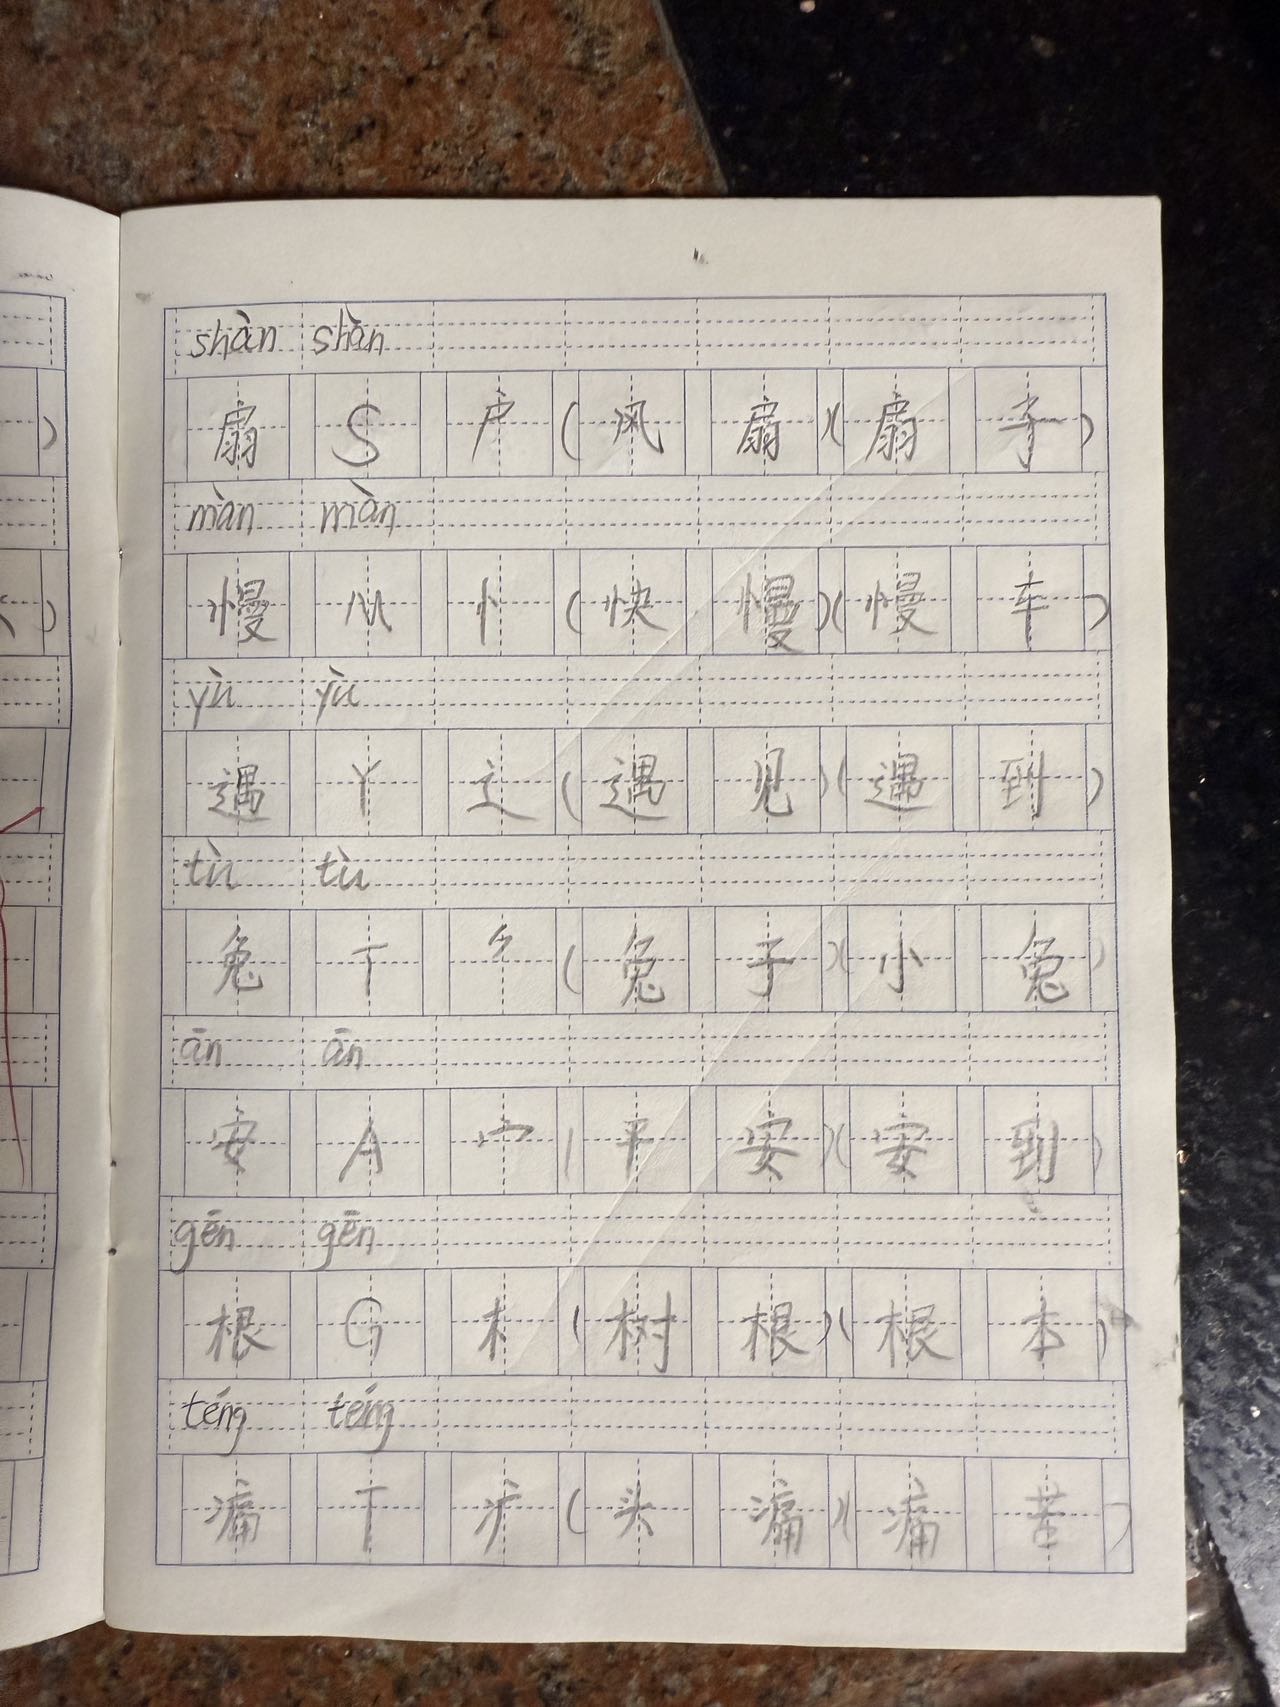 shàn shàn
扇 S 户 (风 扇)(扇 子)
màn màn
慢 M 忄 (快 慢)(慢 车)
yù yù
遇 Y 辶 (遇 见)(遇 到)
tù tù
兔 T 𠂊 (兔 子)(小 兔)
ān ān
安 A 宀 (平 安)(安 到)
gēn gēn
根 G 木 (树 根)(根 本)
téng téng
痛 T 疒 (头 痛)(痛 苦)